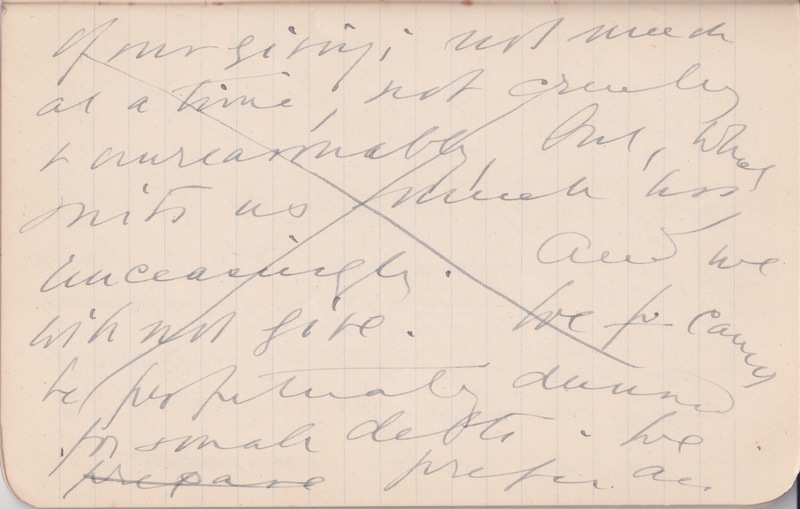 of our giving; not much
at a time, not cruelly
& unreasonably, but, what
suits us much less,
unceasingly. And we
will not give. We cannot
be perpetually dunned
for small debts. We
prepare prefer an